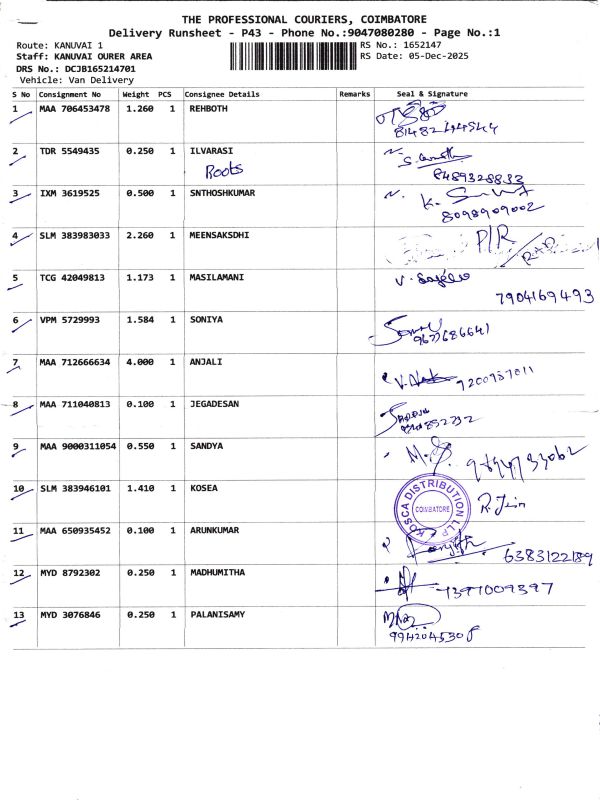 THE PROFESSIONAL COURIERS, COIMBATORE
Delivery Runsheet - P43 - Phone No.:9047080280 - Page No.:1
Route: KANUVAI 1
RS No.: 1652147
Staff: KANUVAI OURER AREA
RS Date: 05-Dec-2025
DRS No.: DCJB165214701
Vehicle: Van Delivery
S No Consignment No Weight PCS Consignee Details Remarks Seal & Signature
1 MAA 706453478 1.260 1 REHBOTH
2 TDR 5549435 0.250 1 ILVARASI
Roots
8489328833
3 IXM 3619525 0.500 1 SNTHOSHKUMAR
8098909002
4 SLM 383983033 2.260 1 MEENSAKSDHI
P/R
5 TCG 42049813 1.173 1 MASILAMANI
7904169493
6 VPM 5729993 1.584 1 SONIYA
9677686641
7 MAA 712666634 4.000 1 ANJALI
8 MAA 711040813 0.100 1 JEGADESAN
9 MAA 9000311054 0.550 1 SANDYA
10 SLM 383946101 1.410 1 KOSEA
KOSCA DISTRIBUTION LLP
COIMBATORE
11 MAA 650935452 0.100 1 ARUNKUMAR
6383122189
12 MYD 8792302 0.250 1 MADHUMITHA
13 MYD 3076846 0.250 1 PALANISAMY